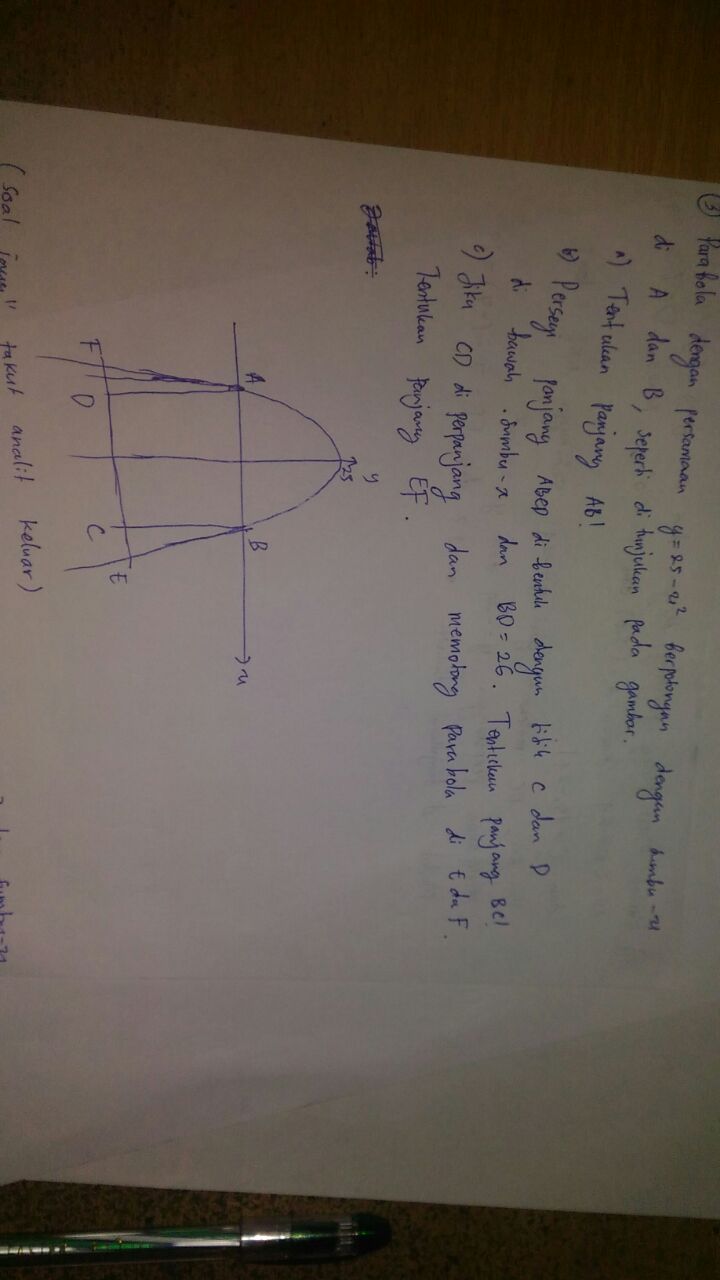 ③ Parabola dengan persamaan y = 25 - x² berpotongan dengan sumbu-x
di A dan B, seperti di tunjukan pada gambar.
a) Tentukan panjang AB!
b) Persegi panjang ABCD di bentuk dengan titik C dan D
di bawah sumbu-x dan BD = 26. Tentukan panjang BC!
c) Jika CD di perpanjang dan memotong parabola di E da F.
Tentukan panjang EF.
Jawab:
y
25
A B x
F D C E
(Soal takut analit keluar)
sumbu-x